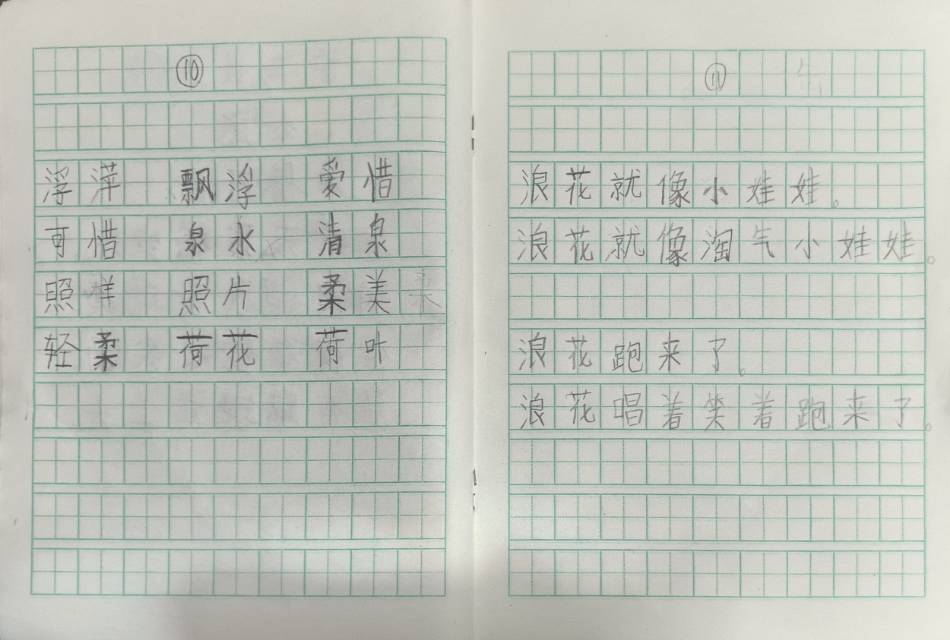 ⑩
浮萍 飘浮 爱惜
可惜 泉水 清泉
照样 照片 柔美
轻柔 荷花 荷叶
⑪
浪花就像小娃娃。
浪花就像淘气小娃娃。
浪花跑来了。
浪花唱着笑着跑来了。